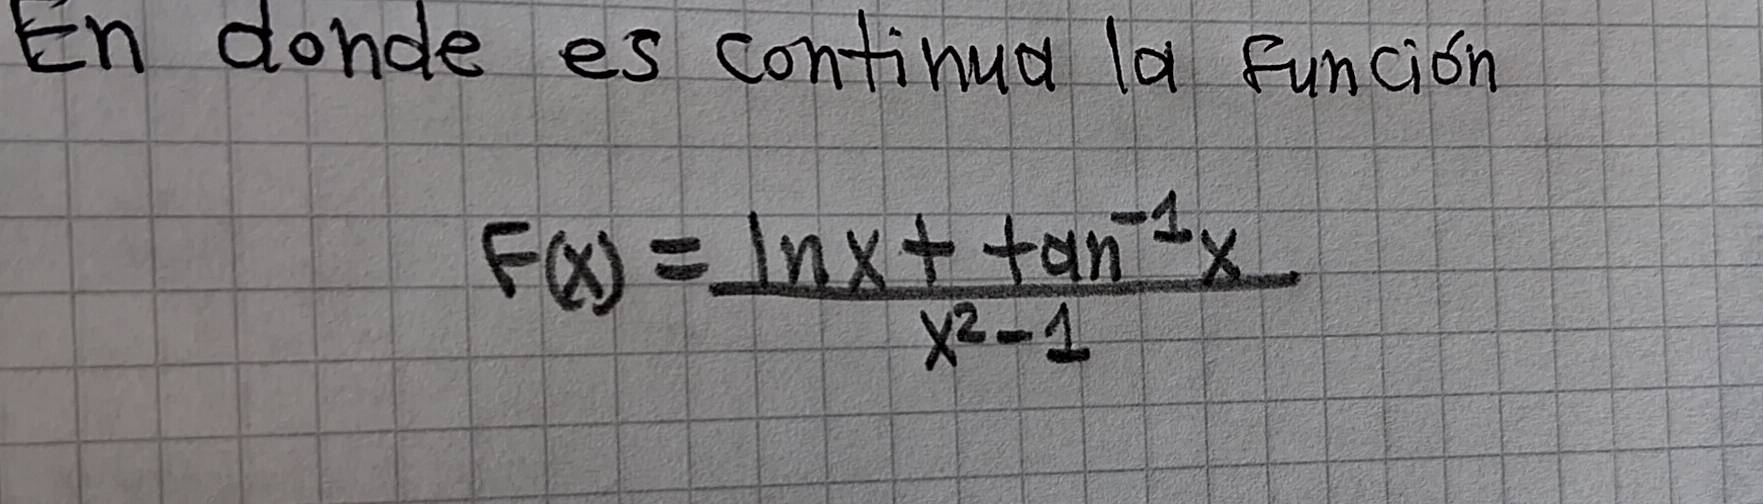 En donde es continua la función
F(x) = ln x + tan⁻¹ x
x² - 1